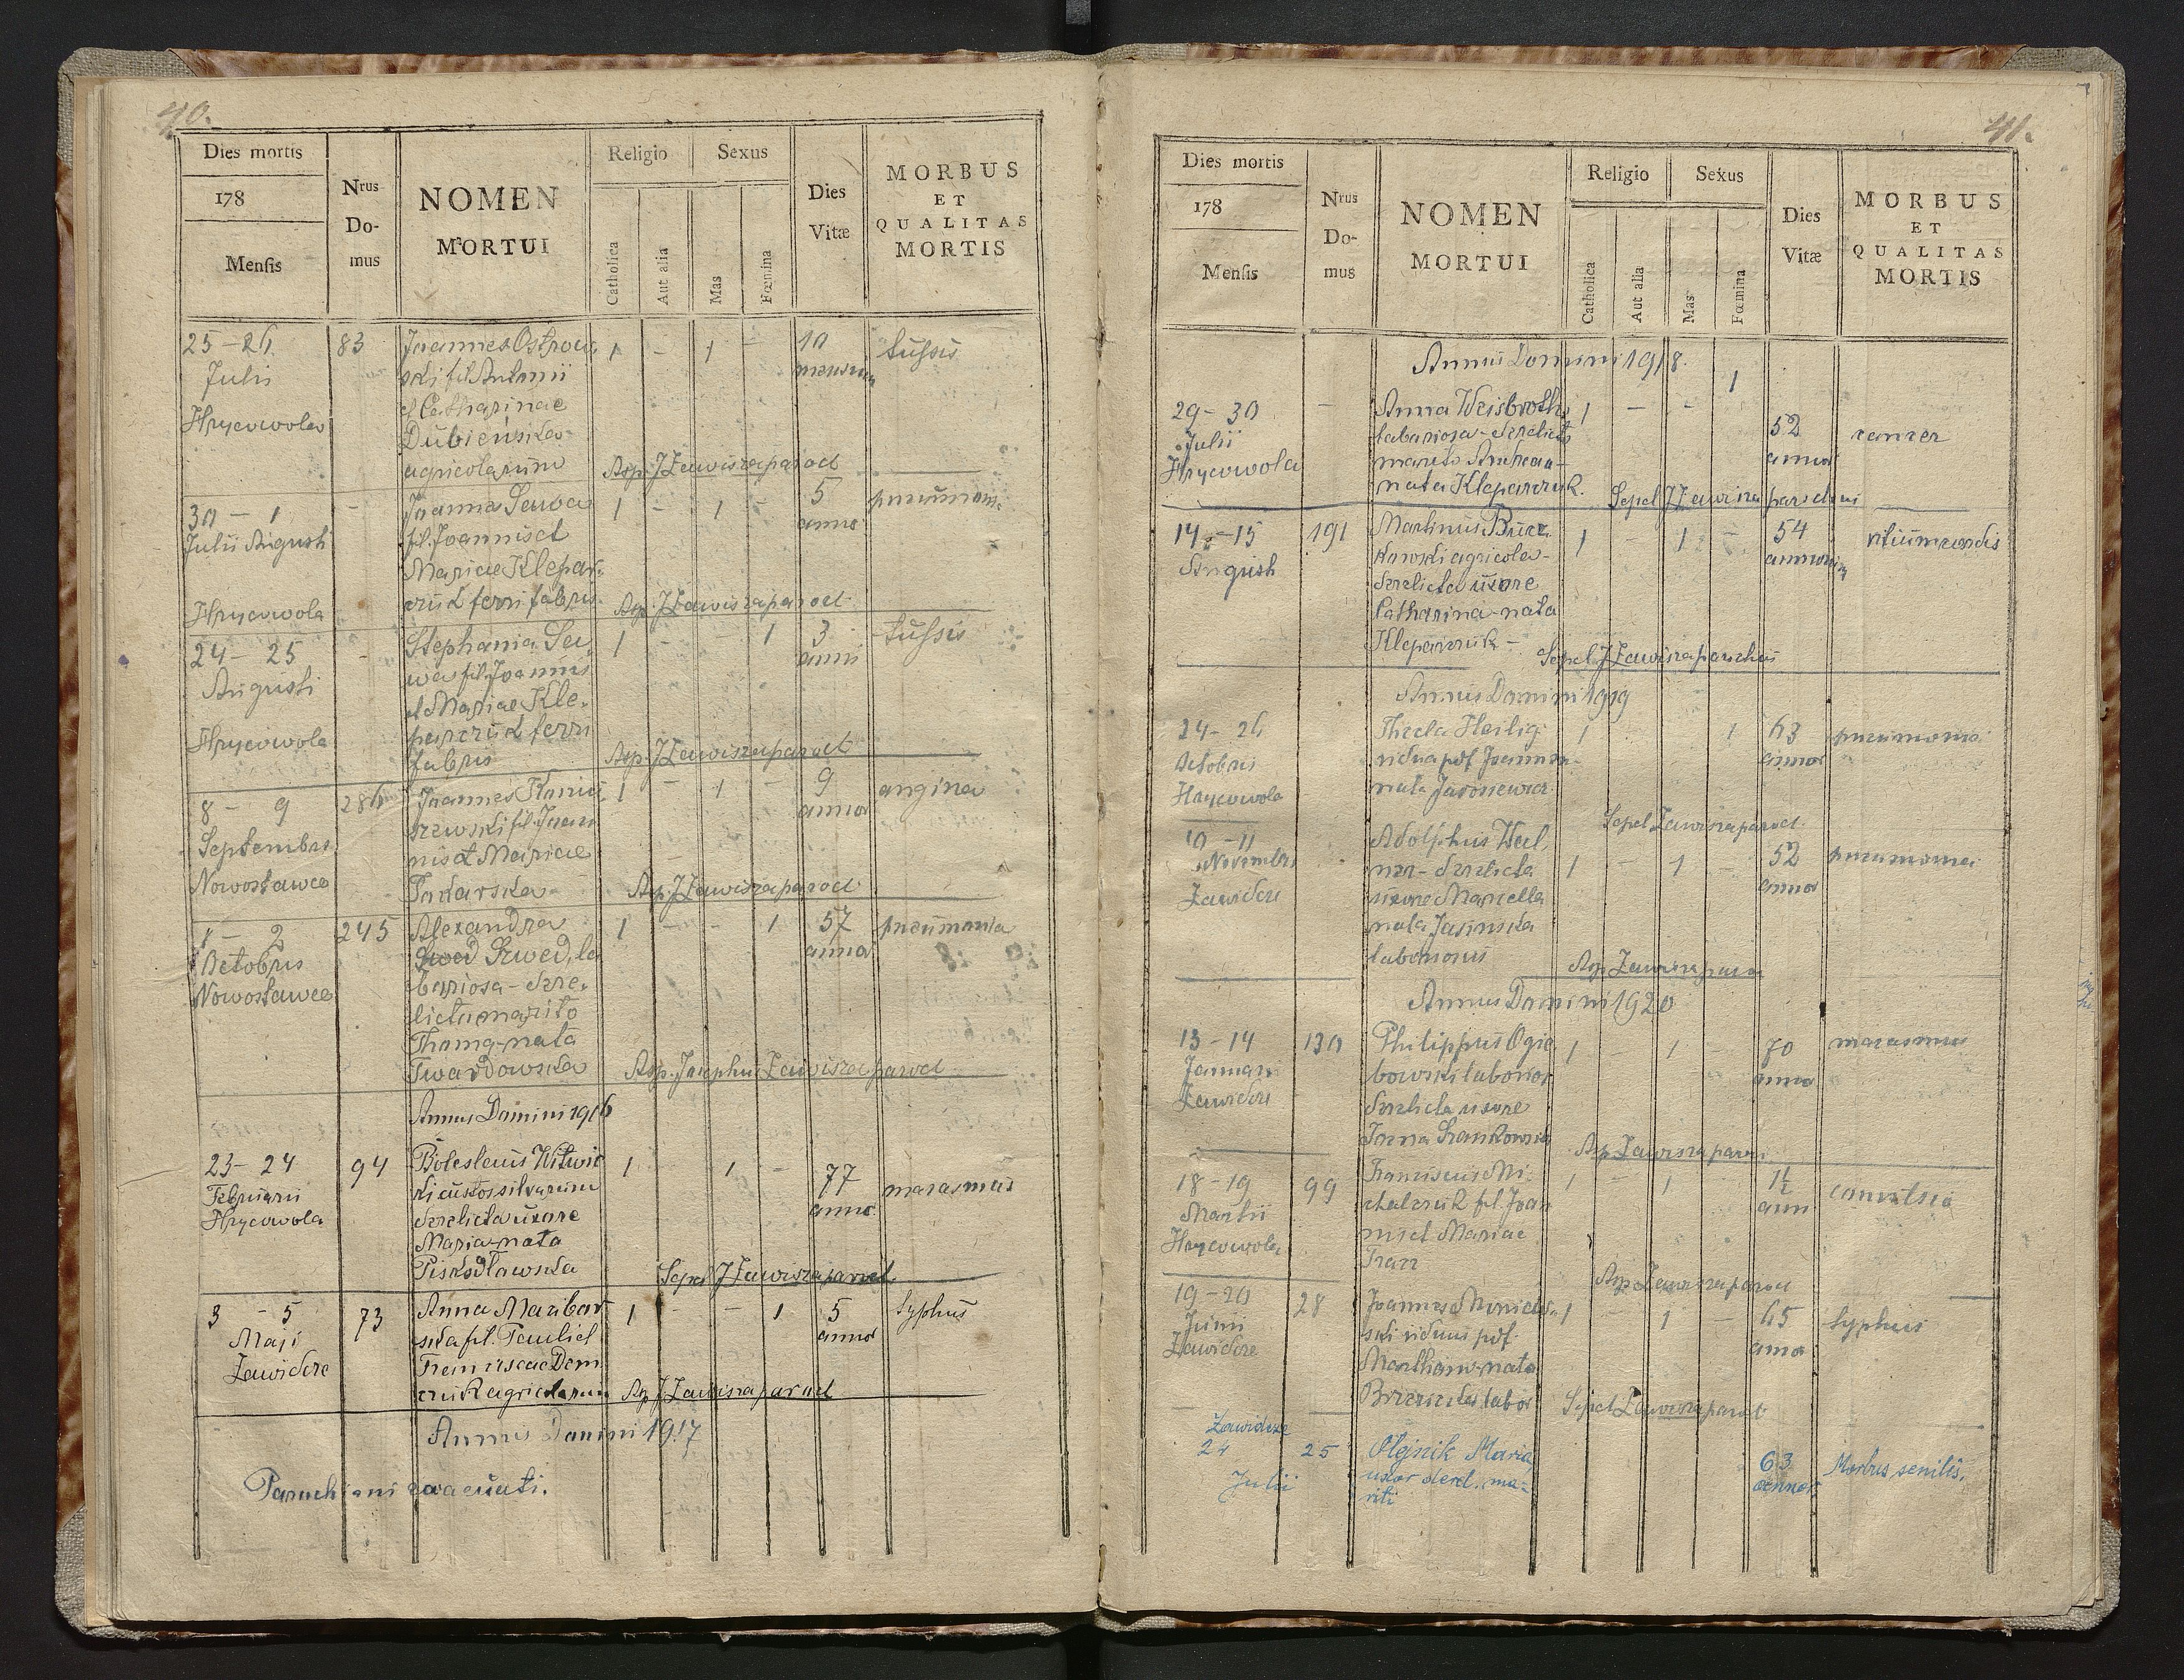 40.
Dies mortis
178
Mensis
Nrus
Do-
mus
NOMEN
MORTUI
Religio
Catholica
Aut alia
Sexus
Mas
Fœmina
Dies
Vitæ
MORBUS
ET
QUALITAS
MORTIS
25 - 26 83 Joannes Ostrow 1 - 1 - 10 tussis
Julii ski fil. Antonii mensium
et Catharinae
Hrycowola Dubieńska
agricolarum Asp. J Zawisza paroch
30 - 1 - Joannes Sawa 1 - 1 - 5 pneumon.
Julii Augusti fil. Joannis et anno
Mariae Klepar
czuk ferri fabris Asp. J Zawisza paroch
Hrycowola
24 - 25 - Stephania Sa 1 - - 1 3 tussis
Augusti wa fil. Joannis anni
et Mariae Kle-
Hrycowola parczuk ferri
fabris Asp. J Zawisza paroch
8 - 9 286 Joannes 1 - 1 - 9 angina
Septembris szewski fil. Joan annor
nis et Mariae
Nowostawce Tokarska Asp. J Zawisza paroch
1 - 2 245 Alexandra 1 - - 1 57 pneumonia
Octobris Szwed, la annor
Nowostawce boriosa - dere-
licto marito
Thoma - nata
Twardowska Asp. Josephus Zawisza paroch
Annus Domini 1916
23 - 24 94 Boleslaus Witwic 1 - 1 - 77 marasmus
Februarii ki custos silvarum annor
Hrycowola derelicta uxore
Maria - nata
Sepel J Zawisza paroch
3 - 5 73 Anna Maribor 1 - - 1 5 typhus
Maji ska fil. Pauli et annor
Zawidcze Franciscae Dem
czuk agricolarum Asp J Zawisza paroch
Annus Domini 1917
Parochiani evacuati.
41.
Dies mortis
178
Mensis
Nrus
Do-
mus
NOMEN
MORTUI
Religio
Catholica
Aut alia
Sexus
Mas
Fœmina
Dies
Vitæ
MORBUS
ET
QUALITAS
MORTIS
Annus Domini 1918.
29 - 30 - Anna Weisbroth 1 - - 1 52 cancer
Julii laboriosa - derelicto annor
Hrycowola marito
nata Kleparczuk. Sepel J Zawisza parochus
14 - 15 191 Martinus 1 - 1 - 54 vitium cordis
Augusti agricola - annorum
derelicta uxore
Catharina - nata
Kleparczuk - Sepel J Zawisza parochus
Annus Domini 1919
24 - 26 Thecla Heilig 1 1 63 pneumonia
Octobris vidua post Joannem annor
Hrycowola nata Jarosiewicz
Sepel Zawisza paroch
10 - 11 Adolphus Wal 1 - 1 - 52 pneumonia
Novembris ner - derelicta annor
Zawidcze uxore Marcella
nata Jasinska
laboriosus Asp Zawisza paroch
Annus Domini 1920
13 - 14 130 Philippus Ogie 1 - 1 - 70 marasmus
Januarii bowski labor annor
Zawidcze derelicta uxore
Anna Asp Zawisza paroch
18 - 19 99 Franciscus Mi 1 - 1 - 1½
Martii chalczuk fil Joan anni
Hrycowola nis et Mariae
Asp Zawisza paroch
19 - 20 28 Joannes 1 - 1 - 65 typhus
Junii ski viduus post annor
Zawidcze Martham - nata
labor Sepel Zawisza paroch
Zawidcze
24 25 Olejnik Maria 63 Morbus senilis.
Julii uxor derel. ma- annor
riti